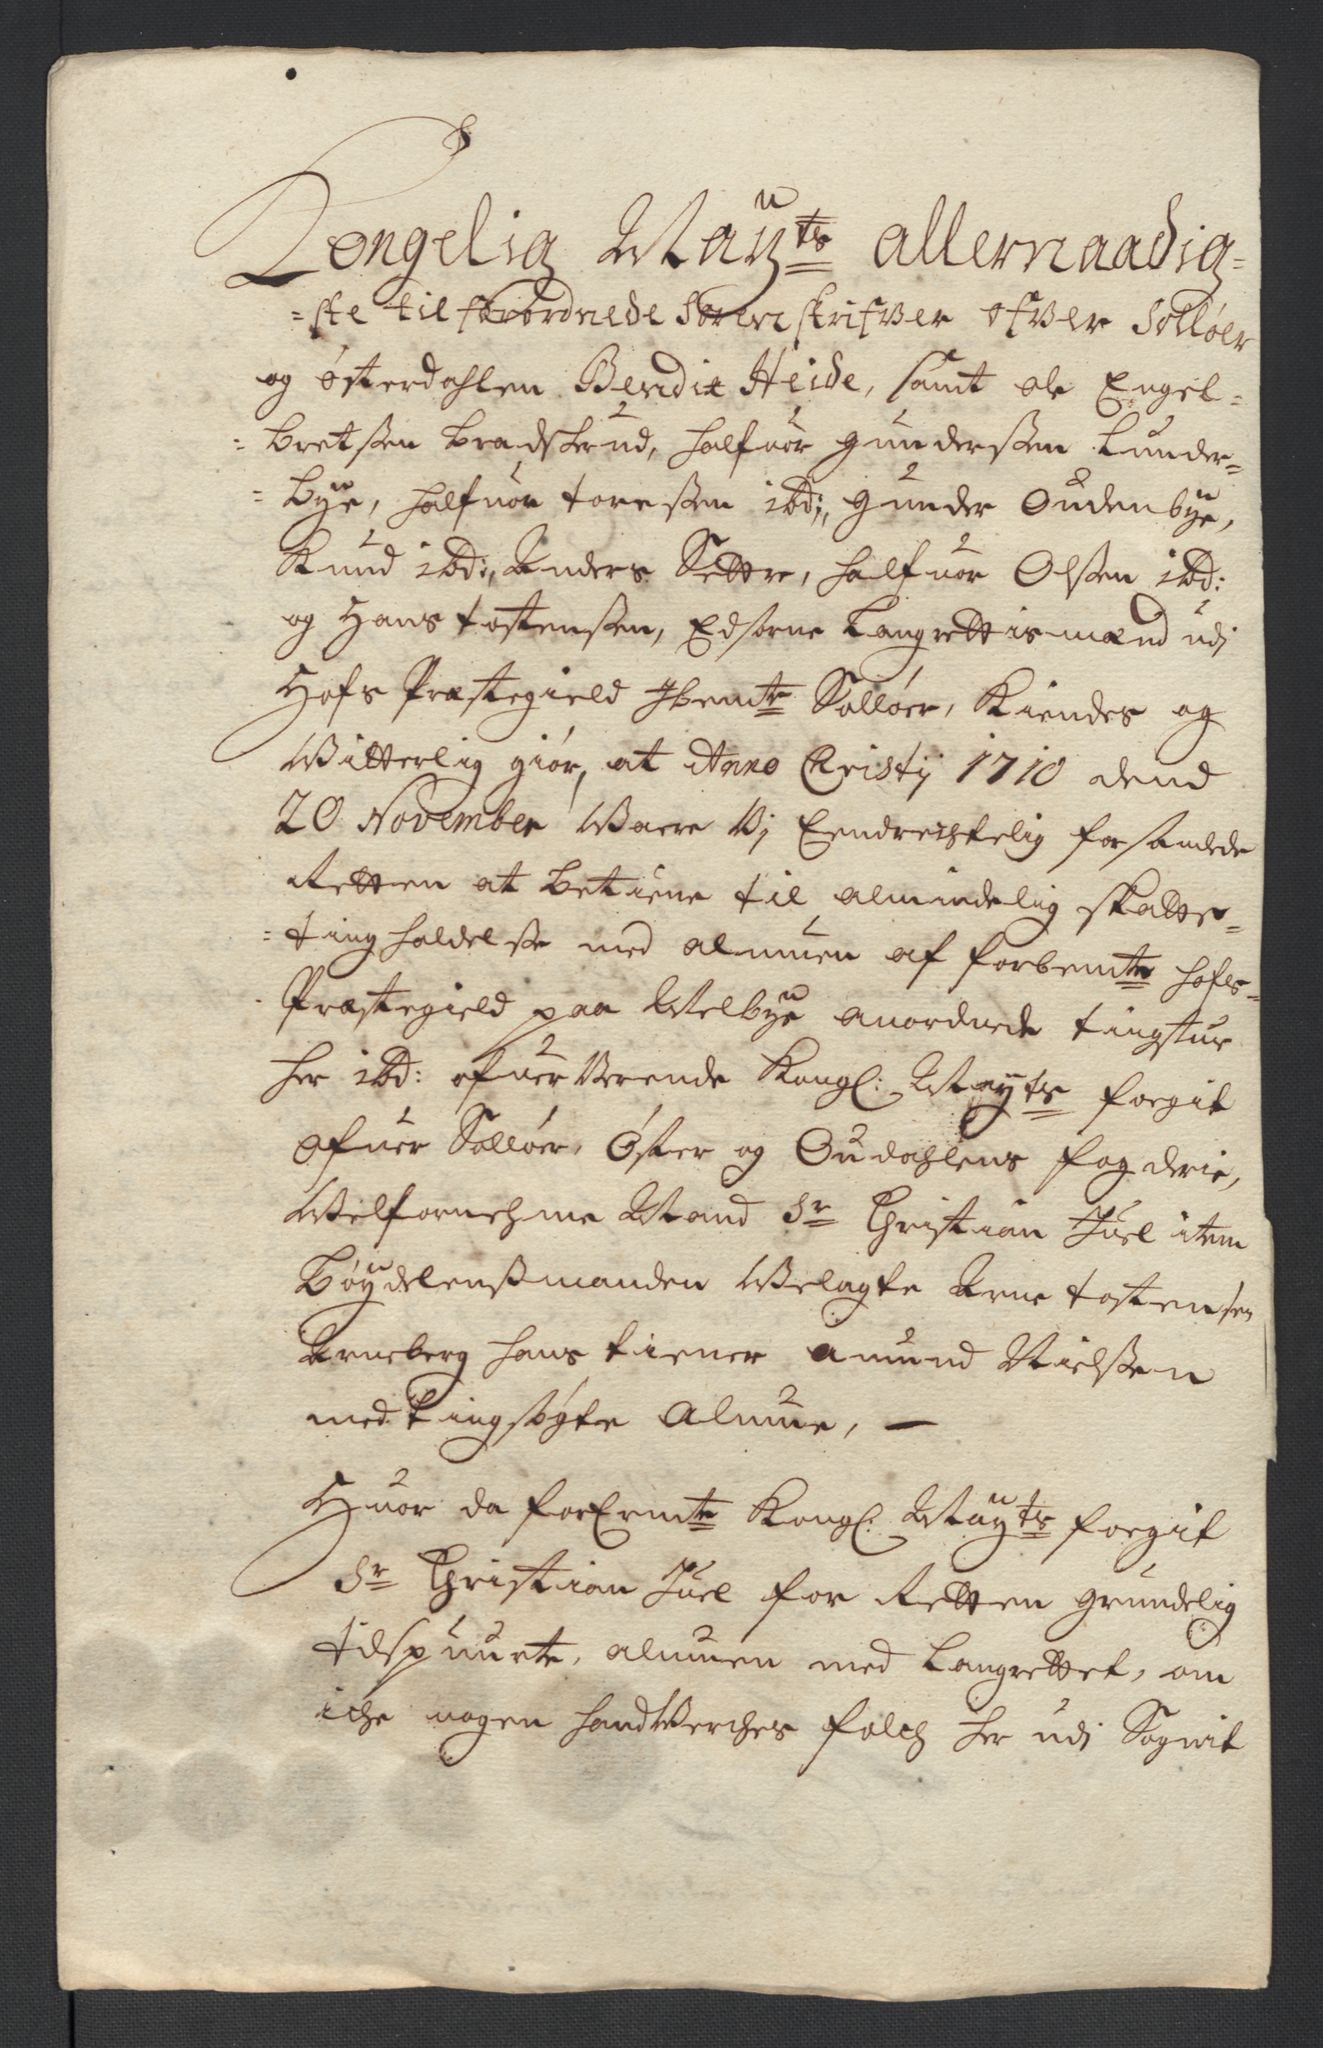 Kongelig Maÿ:ts allernaadig=
=ste til forordnede Sorenskrifver ofver Solløer
og Østerdahlen Bendix Heide, samt ole Engel=
=bretßen Bradskrud, halfuor gunderßen Lunder=
=bÿe, halfuor toreßen ibd:, gunder Oudenbÿe,
Knud ibd:, Anders Settre, halfuor Olßen ibd:
og Hans tostenßen, Edsorne Laugrettismænd udj
Hofs Præstegield Ibemte Solløer, Kiendes og
Witterlig giør, at Anno Christij 1710 dend
20 November Waere Wj Eendrechtelig forsamlede
Retten at betiene til almindelig skatte=
=tingholdelße med almuen af forbemte hofs=
Præstegield paa Melbÿe anordnede tingstue
her ibd: ofuerWerende Kongl: Maÿts fogit
ofuer Solløer, Øster og Oudahlens fogderie,
Welfornehme Mand Sr Christian Juel item
Bøÿdelenßmanden Welagte Arne tostensen
Arneberg hans tiener Amund Nielßen
med tingsøgte Almue, —
Huor da forErmte Kongl: Maÿts fogit
Sr Christian Juel for Retten grundelig
tilspuurte, almuen med Laugrettet, om
iche nogen handWerches folch her udj Sognit